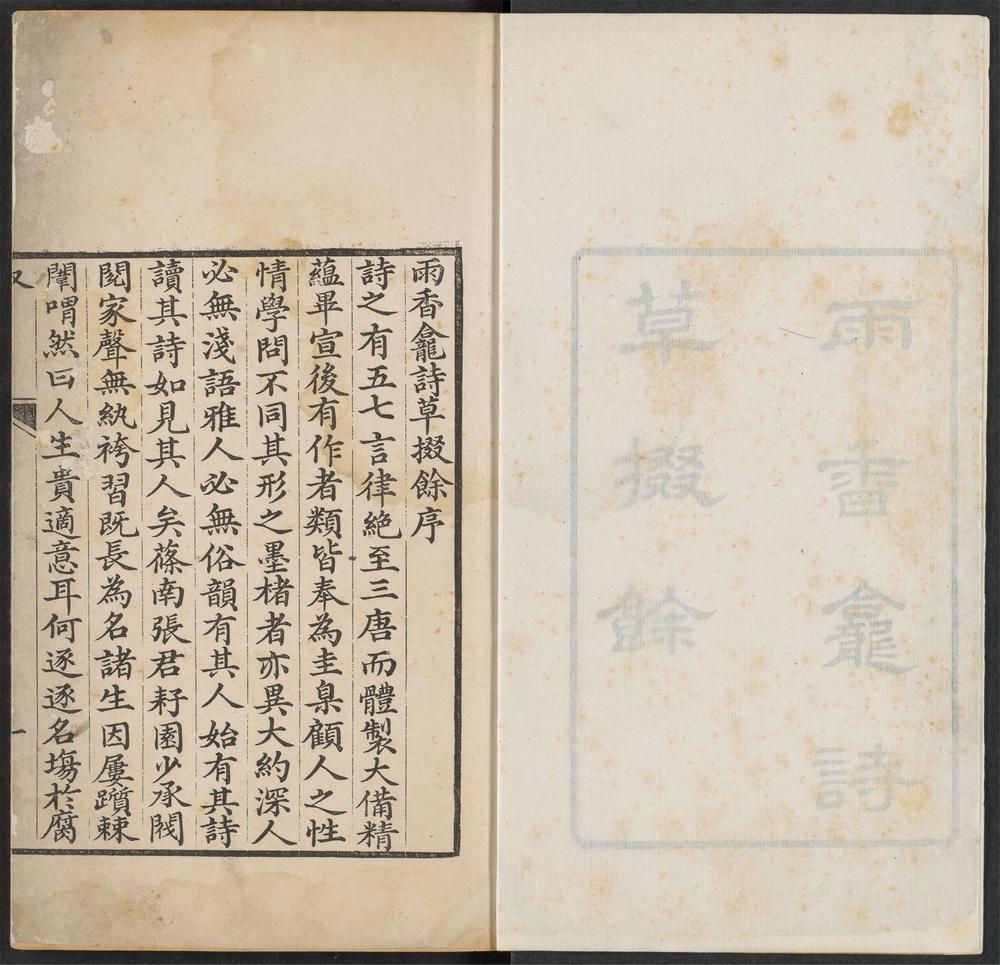 雨香龕詩
草掇餘
雨香龕詩草掇餘序
詩之有五七言律絕至三唐而體製大備精
蘊畢宣後有作者類皆奉為圭臬顧人之性
情學問不同其形之墨楮者亦異大約深人
必無淺語雅人必無俗韻有其人始有其詩
讀其詩如見其人矣蓧南張君耔園少承閥
閱家聲無紈袴習既長為名諸生因屢躓棘
闈喟然曰人生貴適意耳何逐逐名塲於腐
一